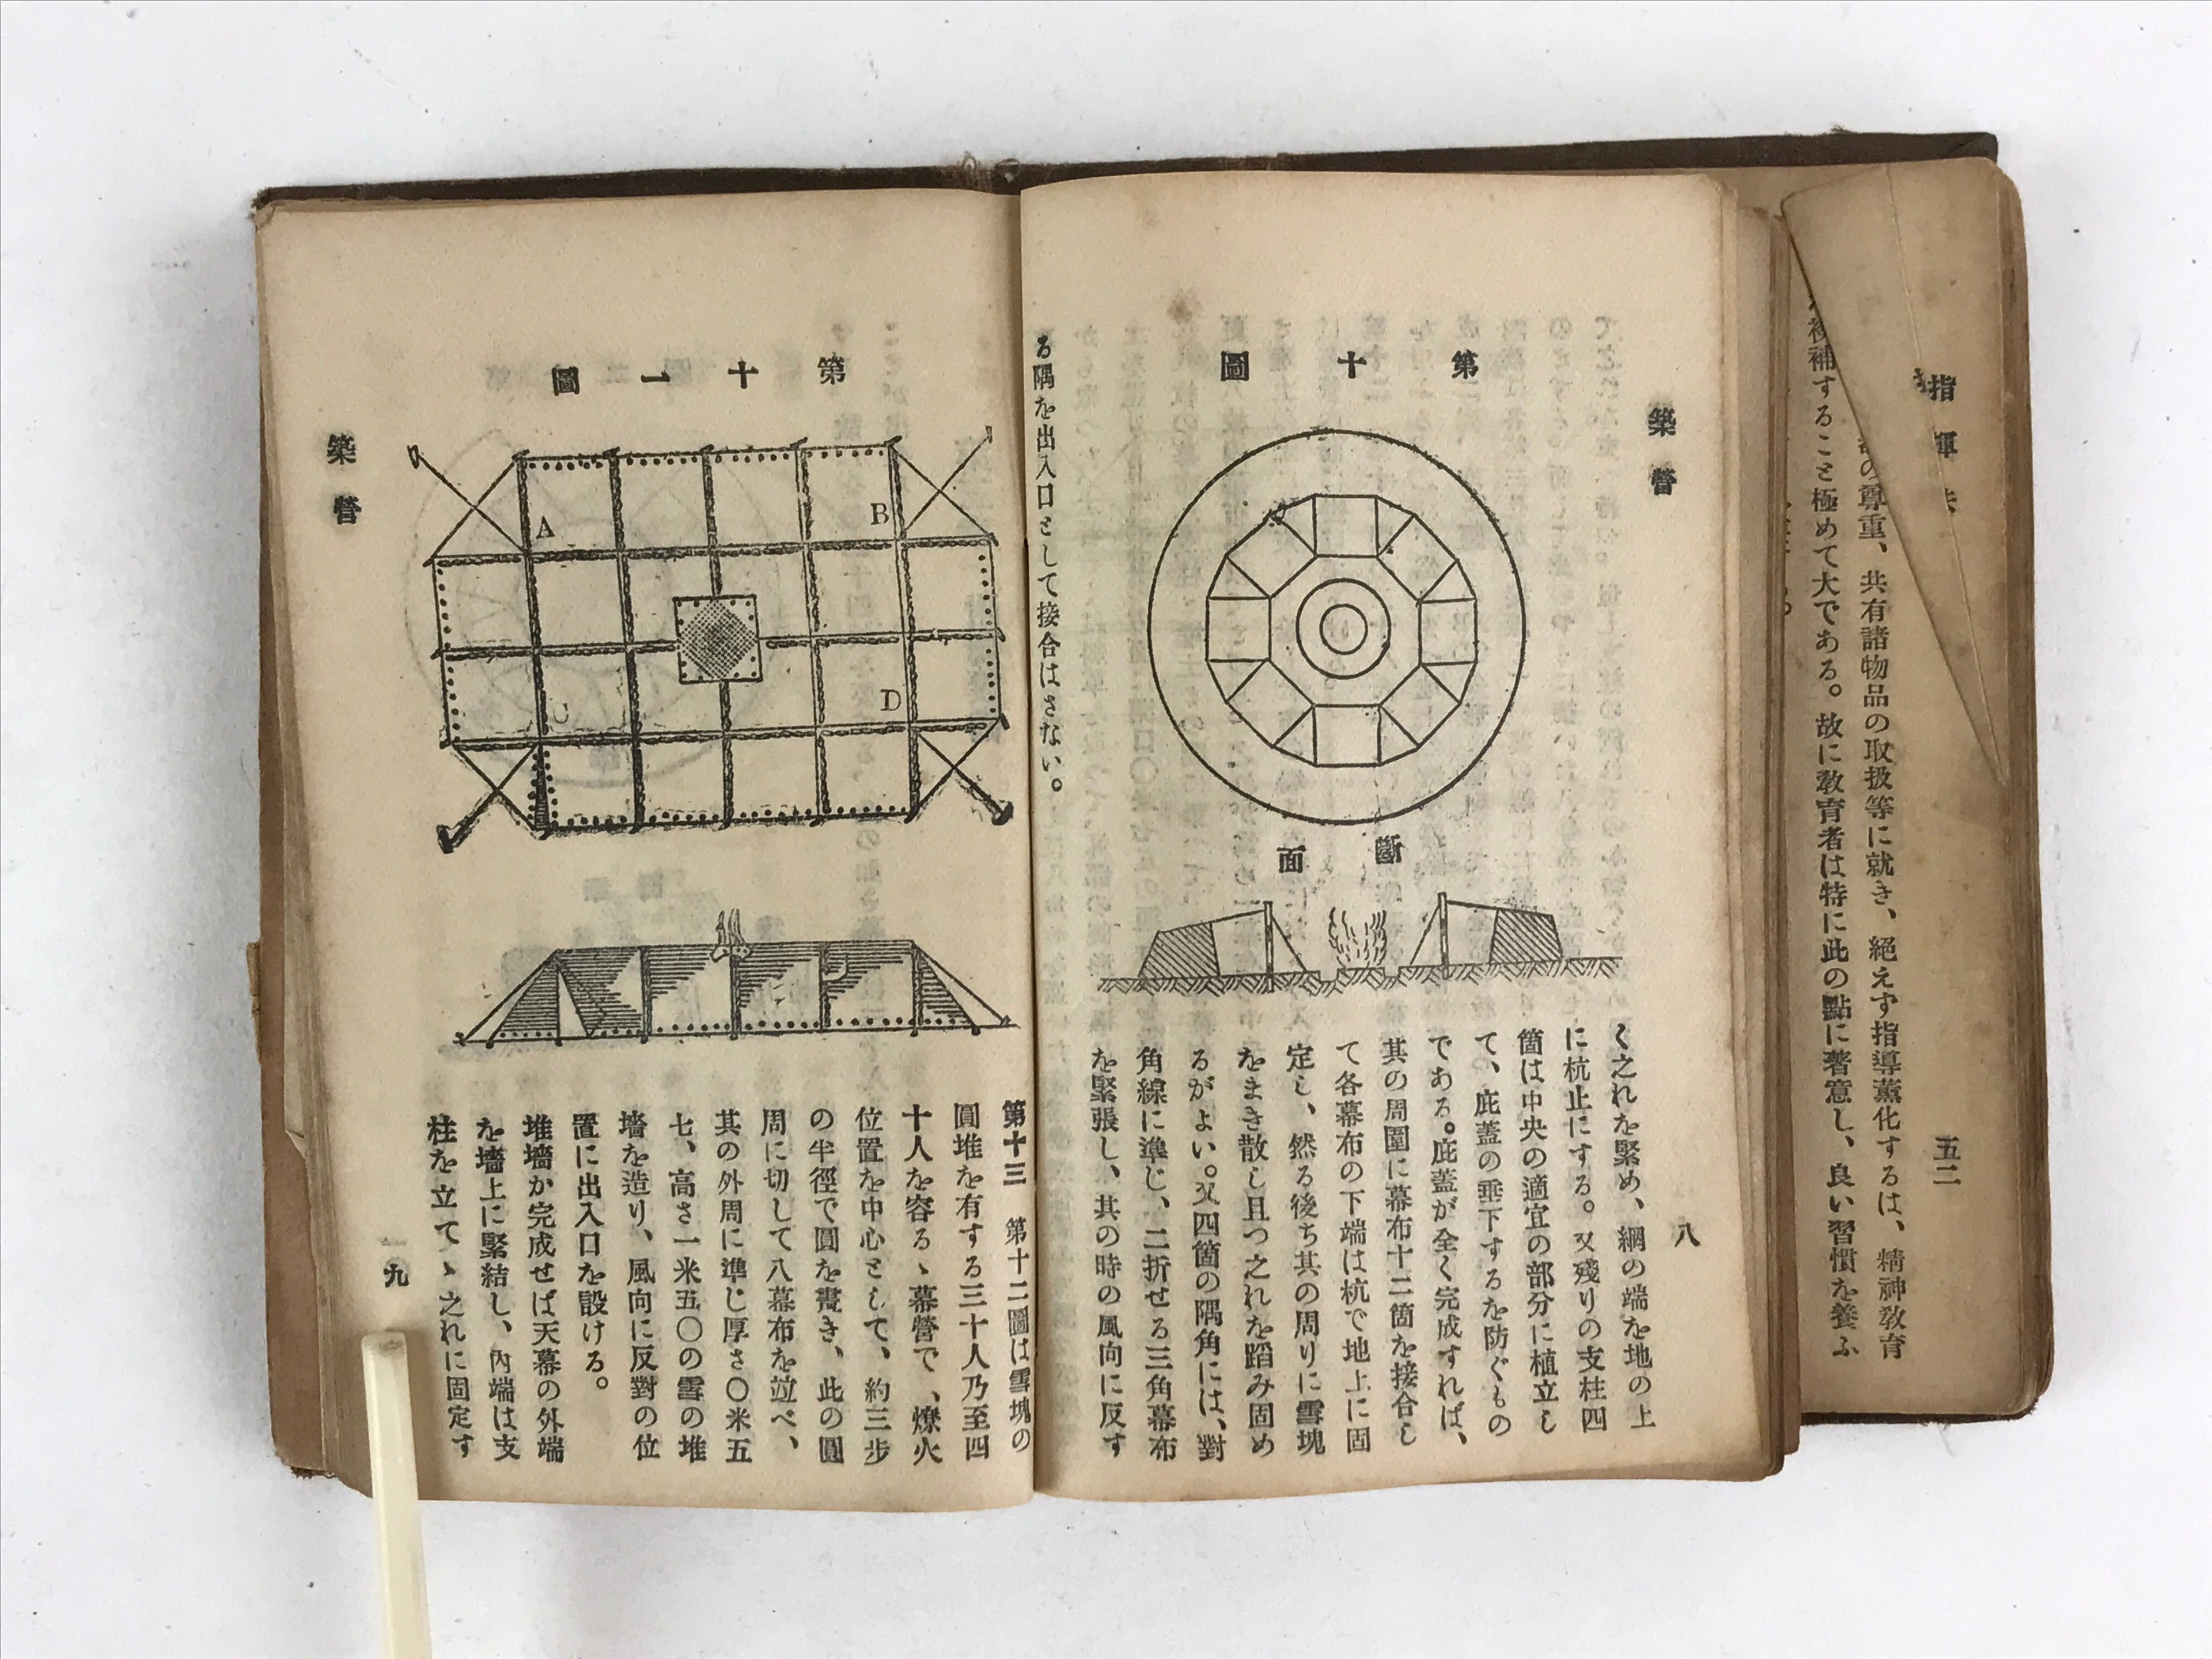 指揮
の尊重、共有諸物品の取扱等に就き、絕えず指導薰化するは、精神敎育
補することを極めて大である。故に敎育者は特に此の點に著意し、良い習慣を養ふ
五二
築營
第十圖
斷面
く之れを緊め、綱の端を地の上
に杭止にする。又殘りの支柱四
箇は中央の適宜の部分に植立し
て、庇蓋の垂下するを防ぐもの
である。庇蓋が全く完成すれば、
其の周圍に幕布十二箇を接合し
て各幕布の下端は杭で地上に固
定し、然る後ち其の周りに雪塊
をまき散し且つ之れを蹈み固め
るがよい。又四箇の隅角には、對
角線に準じ、二折せる三角幕布
を緊張し、其の時の風向に反す
八
る隅を出入口として接合はさない。
第十一圖
A
B
C
D
築營
第十三 第十二圖は雪塊の
圓堆を有する三十人乃至四
十人を容るゝ幕營で、燎火
位置を中心として、約三步
の半徑で圓を畫き、此の圓
周に切して八幕布を竝べ、
其の外周に準じ厚さ〇米五
七、高さ一米五〇の雪の堆
墻を造り、風向に反對の位
置に出入口を設ける。
堆墻か完成せば天幕の外端
を墻上に緊結し、內端は支
柱を立てゝ之れに固定す
一九